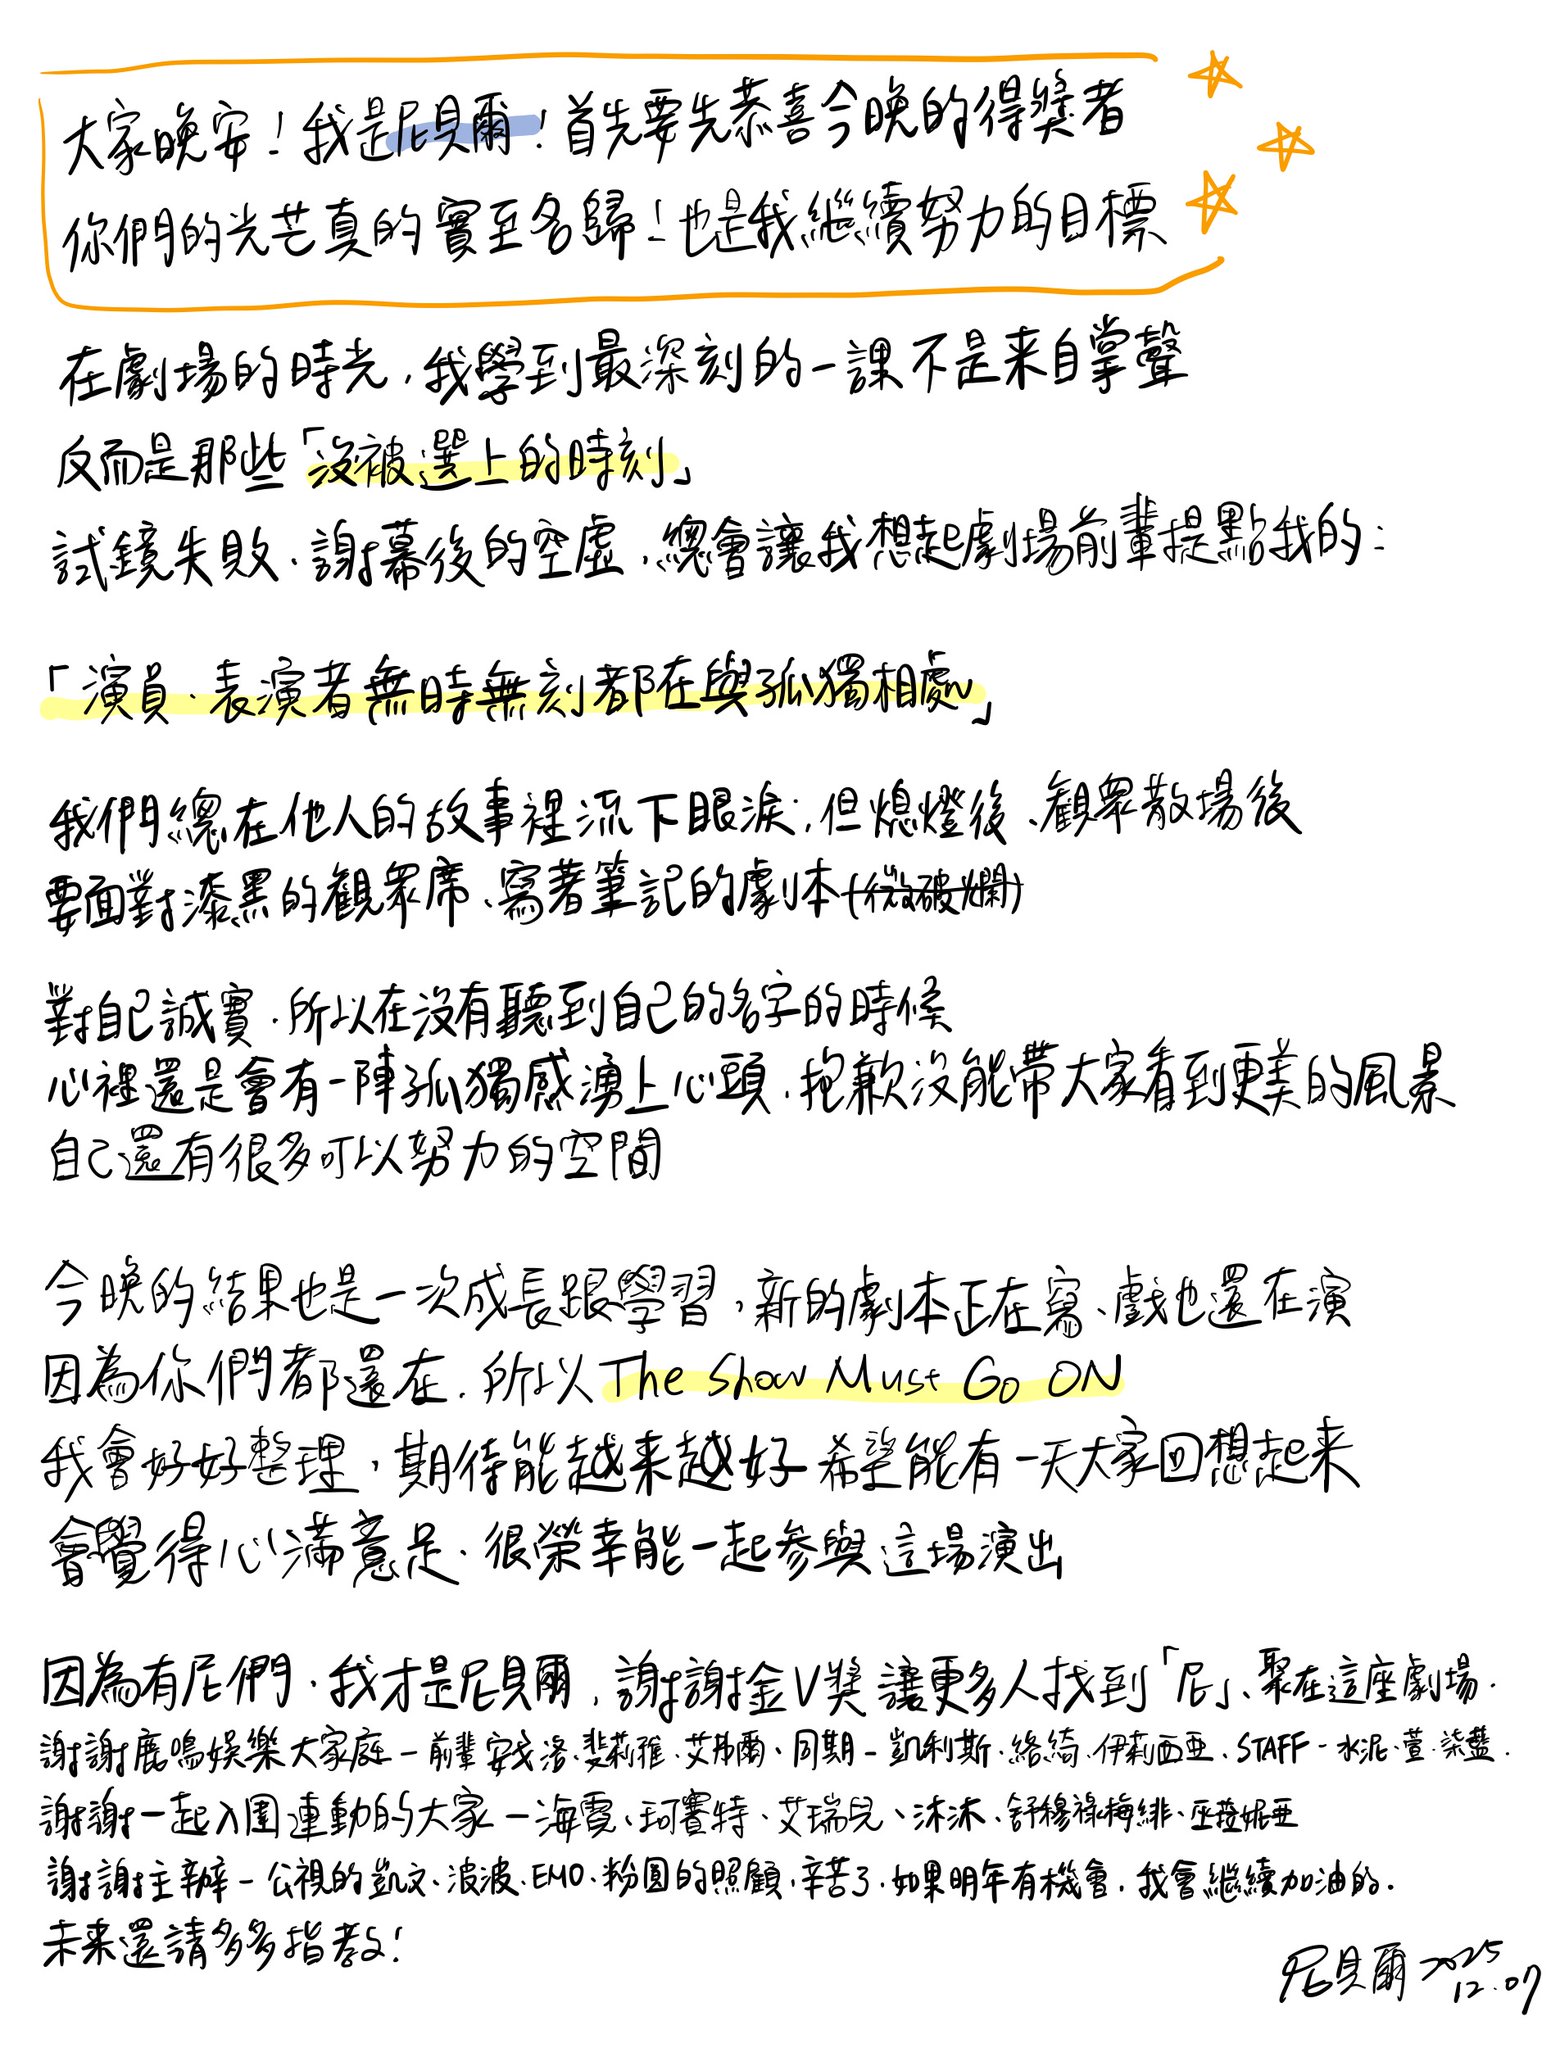 大家晚安！我是尼貝爾！首先要先恭喜今晚的得獎者
你們的光芒真的實至名歸！也是我繼續努力的目標
在劇場的時光，我學到最深刻的一課不是来自掌聲
反而是那些「沒被選上的時刻」
試鏡失敗、謝幕後的空虛，總會讓我想起劇場前輩提點我的：
「演員、表演者無時無刻都在與孤獨相處」
我們總在他人的故事裡流下眼淚；但熄燈後、觀眾散場後
要面對漆黑的觀眾席、寫著筆記的劇本（微破爛）
對自己誠實，所以在沒有聽到自己的名字的時候
心裡還是會有一陣孤獨感湧上心頭，抱歉沒能帶大家看到更美的風景
自己還有很多可以努力的空間
今晚的結果也是一次成長跟學習，新的劇本正在寫、戲也還在演
因為你們都還在，所以 The Show Must Go ON
我會好好整理，期待能越来越好 希望能有一天大家回想起来
會覺得心滿意足，很榮幸能一起參與這場演出
因為有尼們，我才是尼貝爾，謝謝金V獎讓更多人找到「尼」、聚在這座劇場.
謝謝鹿鳴娛樂大家庭－前輩安戈洛、斐莉雅、艾弗爾、同期－凱利斯、絡綺、伊莉西亞、STAFF－水泥、萱、柒藍.
謝謝一起入圍連動的大家－海霓、珂賽特、艾瑞兒、沐沐、舒穆祿梅緋、巫菈妮亞
謝謝主辦－公視的凱文、波波、EMO、粉圓的照顧，辛苦了，如果明年有機會，我會繼續加油的.
未来還請多多指教！
尼貝爾 2025
12.07